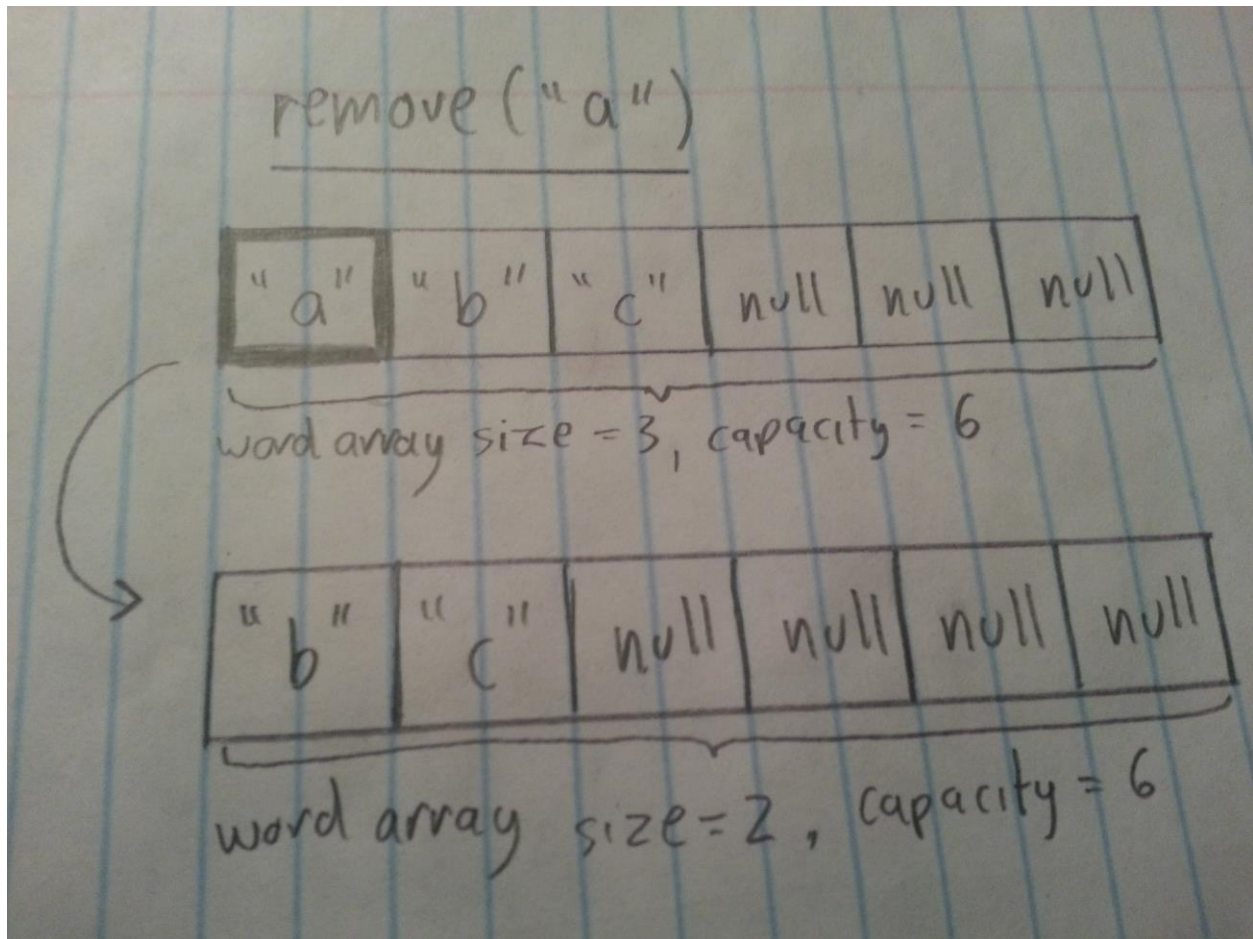 remove ("a")
"a" "b" "c" null null null
word array size = 3, capacity = 6
"b" "c" null null null null
word array size = 2, capacity = 6